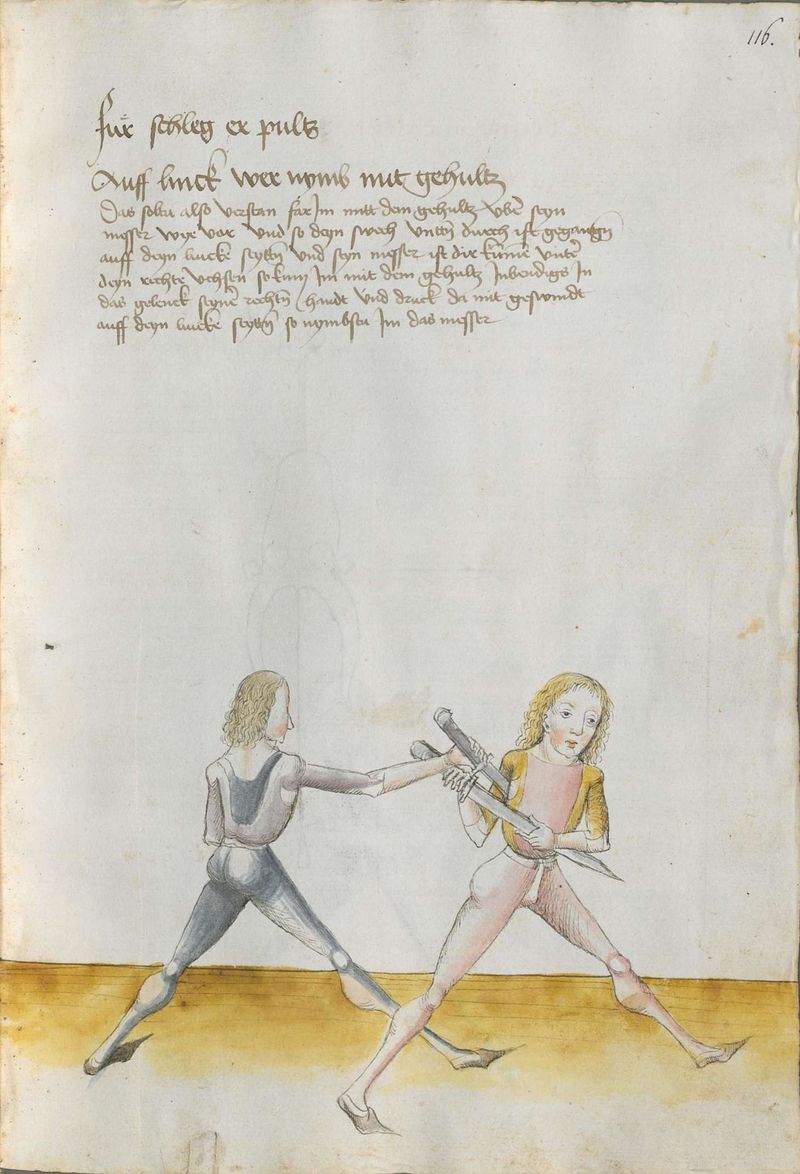 116.
für schleg er pultz
Auff linck wer nymb mit gehultz
Das soltu also verstan far Im mitt dem gehultz vber seyn
messer wye vor und so deyn swech unttn durch ist gegangen
auff deyn lincke seyttn und seyn messer ist dir kume unter
deyn rechte vchsen so kum Im mit dem gehultz Inbendigs In
das gelenck seyner rechten handt und druck da mit geswindt
auff deyn lincke seyttn so nymbstu Im das messer